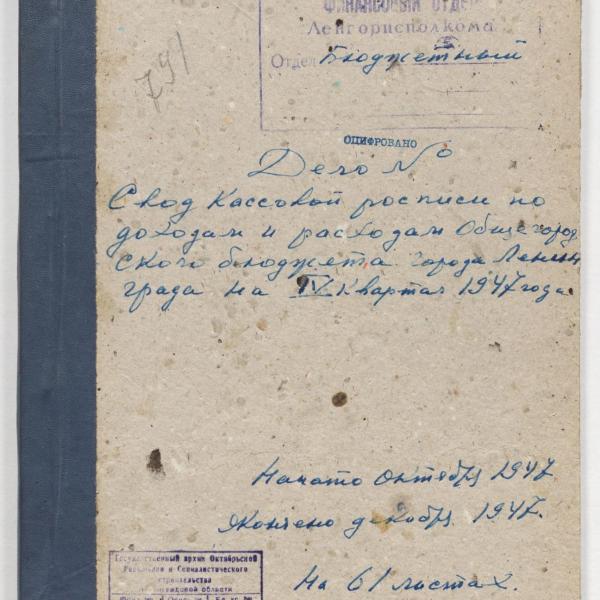 ФИНАНСОВЫЙ ОТДЕЛ
Ленгорисполкома
Отдел Бюджетный
791
ОЦИФРОВАНО
Дело №
Свод Кассовой росписи по
доходам и расходам Общегород
ского бюджета города Ленин
града на IV квартал 1947 года
Начато октябрь 1947
Окончено декабрь 1947.
На 61 листах.
Государственный архив Октябрьской
Революции и Социалистического
строительства
Ленинградской области